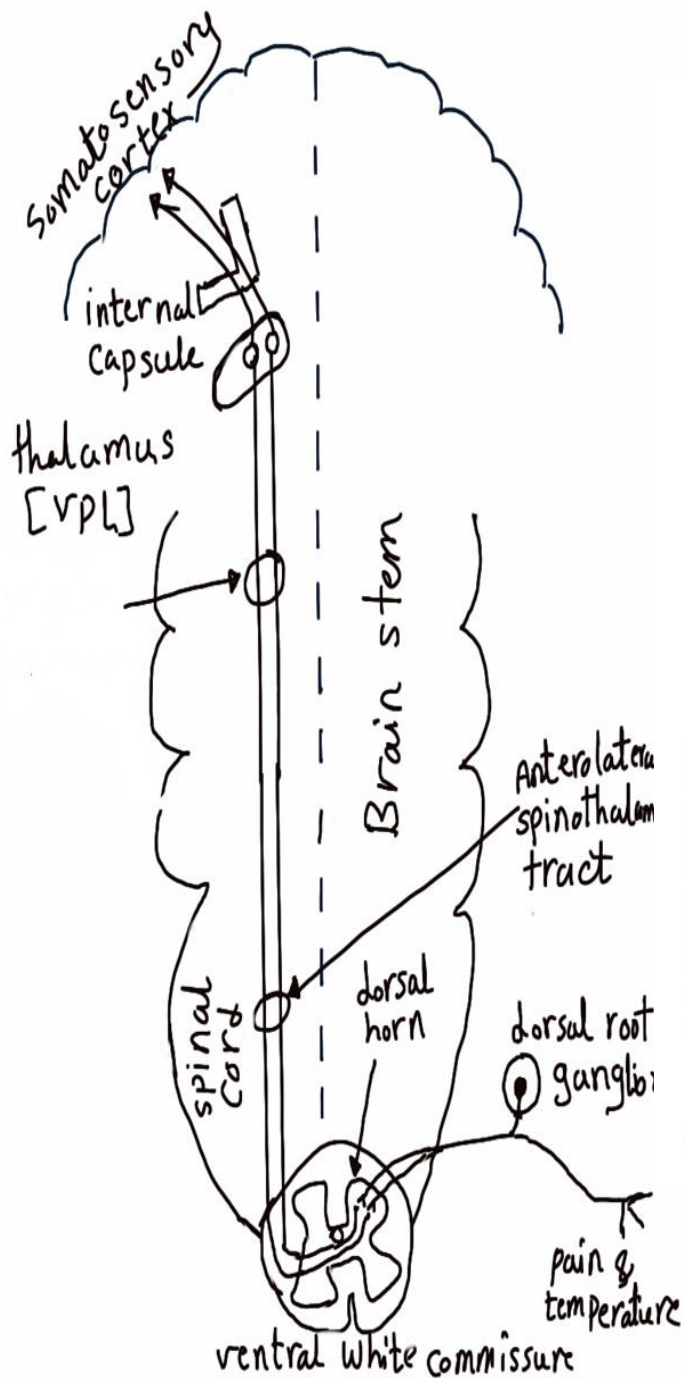 somatosensory
cortex
internal
capsule
thalamus
[VPL]
Brain stem
Anterolatera
spinothalam
tract
spinal
cord
dorsal
horn
dorsal root
ganglio
pain &
temperature
ventral white commissure